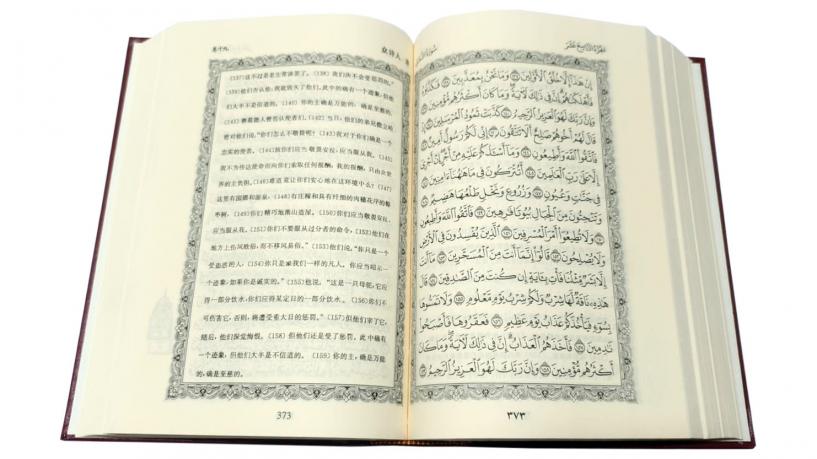 卷十九
众诗人
(137)这不过是老生常谈罢了。(138)我们决不会受惩罚的。”
(139)他们否认他,我就毁灭了他们,此中的确有一个迹象,但他
们大半不是信道的。(140)你的主确是万能的,确是至慈的。
(141)赛莫德人曾否认使者们。(142)当日,他们的弟兄撒立哈
曾对他们说:“你们怎么不敬畏呢?(143)我对于你们确是一个
忠实的使者。(144)故你们应当敬畏安拉,应当服从我。(145)
我不为传达使命而向你们索取任何报酬,我的报酬,只由全世
界的主负担。(146)难道竟让你们安心地在这环境中么?(147)
这里有园圃和源泉,(148)有庄稼和具有纤细的肉穗花序的椰
枣树,(149)你们精巧地凿山造屋。(150)你们应当敬畏安拉,
应当服从我。(151)你们不要服从过分者的命令,(152)他们在
地方上伤风败俗,而不移风易俗。”(153)他们说:“你只是一个
受蛊惑的人,(154)你只是象我们一样的凡人。你应当昭示一
个迹象,如果你是诚实的。”(155)他说:“这是一只母驼,它应
得一部分饮水,你们应得某定日的一部分饮水。(156)你们不
可伤害它,否则,将遭受重大日的惩罚。”(157)但他们宰了它,
随后,他们深觉悔恨。(158)但他们还是受了惩罚。此中确有
一个迹象,但他们大半是不信道的。(159)你的主,确是万能
的,确是至慈的。
373
إِنْ هَٰذَآ إِلَّا خُلُقُ ٱلْأَوَّلِينَ ١٣٧ وَمَا نَحْنُ بِمُعَذَّبِينَ ١٣٨ فَكَذَّبُوهُ
فَأَهْلَكْنَٰهُمْ إِنَّ فِى ذَٰلِكَ لَءَايَةً وَمَا كَانَ أَكْثَرُهُم مُّؤْمِنِينَ ١٣٩
وَإِنَّ رَبَّكَ لَهُوَ ٱلْعَزِيزُ ٱلرَّحِيمُ ١٤٠ كَذَّبَتْ ثَمُودُ ٱلْمُرْسَلِينَ ١٤١
إِذْ قَالَ لَهُمْ أَخُوهُمْ صَٰلِحٌ أَلَا تَتَّقُونَ ١٤٢ إِنِّى لَكُمْ رَسُولٌ أَمِينٌ ١٤٣
فَٱتَّقُوا۟ ٱللَّهَ وَأَطِيعُونِ ١٤٤ وَمَآ أَسْـَٔلُكُمْ عَلَيْهِ مِنْ أَجْرٍ إِنْ أَجْرِىَ
إِلَّا عَلَىٰ رَبِّ ٱلْعَٰلَمِينَ ١٤٥ أَتُتْرَكُونَ فِى مَا هَٰهُنَآ ءَامِنِينَ ١٤٦
فِى جَنَّٰتٍ وَعُيُونٍ ١٤٧ وَزُرُوعٍ وَنَخْلٍ طَلْعُهَا هَضِيمٌ ١٤٨
وَتَنْحِتُونَ مِنَ ٱلْجِبَالِ بُيُوتًا فَٰرِهِينَ ١٤٩ فَٱتَّقُوا۟ ٱللَّهَ وَأَطِيعُونِ ١٥٠
وَلَا تُطِيعُوٓا۟ أَمْرَ ٱلْمُسْرِفِينَ ١٥١ ٱلَّذِينَ يُفْسِدُونَ فِى ٱلْأَرْضِ
وَلَا يُصْلِحُونَ ١٥٢ قَالُوٓا۟ إِنَّمَآ أَنتَ مِنَ ٱلْمُسَحَّرِينَ ١٥٣ مَآ أَنتَ
إِلَّا بَشَرٌ مِّثْلُنَا فَأْتِ بِـَٔايَةٍ إِن كُنتَ مِنَ ٱلصَّٰدِقِينَ ١٥٤ قَالَ
هَٰذِهِۦ نَاقَةٌ لَّهَا شِرْبٌ وَلَكُمْ شِرْبُ يَوْمٍ مَّعْلُومٍ ١٥٥ وَلَا تَمَسُّوهَا
بِسُوٓءٍ فَيَأْخُذَكُمْ عَذَابُ يَوْمٍ عَظِيمٍ ١٥٦ فَعَقَرُوهَا فَأَصْبَحُوا۟
نَٰدِمِينَ ١٥٧ فَأَخَذَهُمُ ٱلْعَذَابُ إِنَّ فِى ذَٰلِكَ لَءَايَةً وَمَا كَانَ
أَكْثَرُهُم مُّؤْمِنِينَ ١٥٨ وَإِنَّ رَبَّكَ لَهُوَ ٱلْعَزِيزُ ٱلرَّحِيمُ ١٥٩
٣٧٣